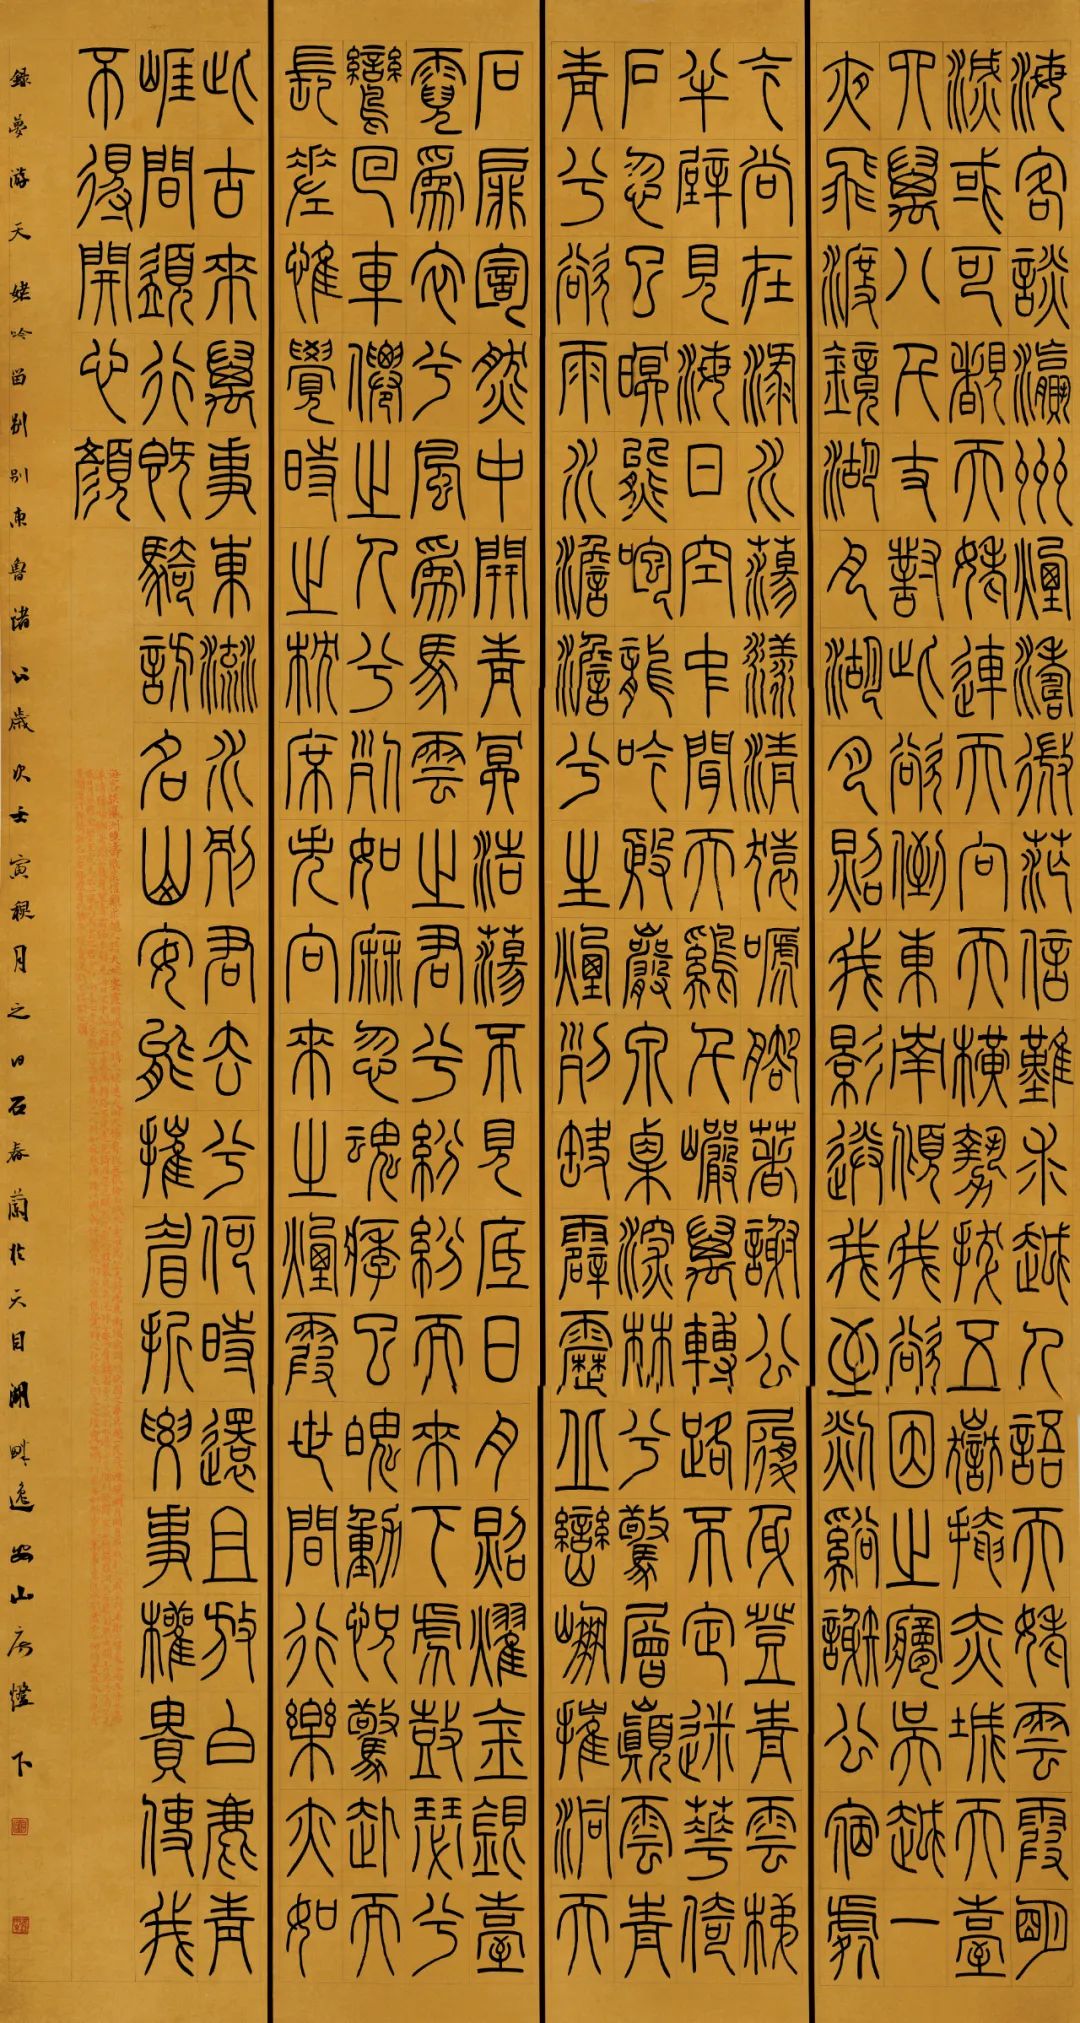 海客談瀛州煙濤微茫信難求越人語天姥雲霞明
滅或可覩天姥連天向天橫勢拔五嶽掩赤城天臺
四萬八千丈對此欲倒東南傾我欲因之夢吳越一
夜飛渡鏡湖月湖月照我影送我至剡谿謝公宿處
今尚在淥水蕩漾清猿啼腳著謝公屐身登青雲梯
半壁見海日空中聞天雞千巖萬轉路不定迷華倚
石忽已暝熊咆龍吟殷巖泉慄深林兮驚層巔雲青
青兮欲雨水澹澹兮生煙列缺霹靂丘巒崩摧洞天
石扉訇然中開青冥浩蕩不見底日月照燿金銀臺
霓為衣兮風為馬雲之君兮紛紛而來下虎鼓瑟兮
鸞回車僊之人兮列如麻忽魂悸以魄動怳驚起而
長嗟惟覺時之枕席失向來之煙霞世間行樂亦如
此古來萬事東流水別君去兮何時還且放白鹿青
崖間須行即騎訪名山安能摧眉折腰事權貴使我
不得開心顏
錄夢游天姥吟留別別東魯諸公歲次壬寅月之日石春蘭於天目湖畔逸山房燈下